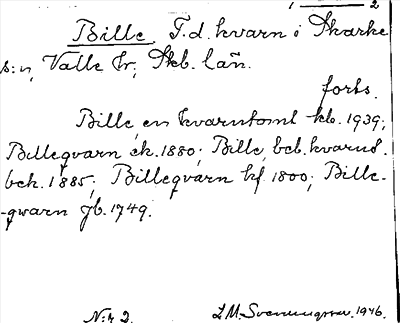 2
Bille, F.d. kvarn i Skarke
s:n, Valle hr, Skb. län.
forts.
Bille, en kvarntomt kb. 1939;
Billeqvarn ek. 1880; Bille, beb. kvarnst.
bek. 1885; Billeqvarn kf 1800; Bille-
-qwarn jb. 1749.
N:r 2.
L.M. Svenungsson. 1946.